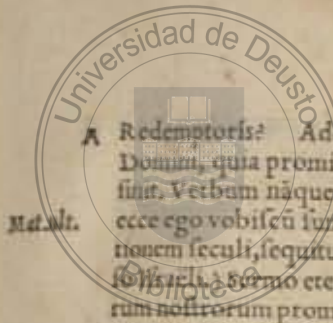 Universidad de Deusto
Biblioteca
A Redemptoris? Ad
Dominũ, quia promi
sint. Verbum nãque
Mat. vlt. ecce ego vobiscũ sum
tionem seculi, sequitu
sermo ete
rum nostrorum prom